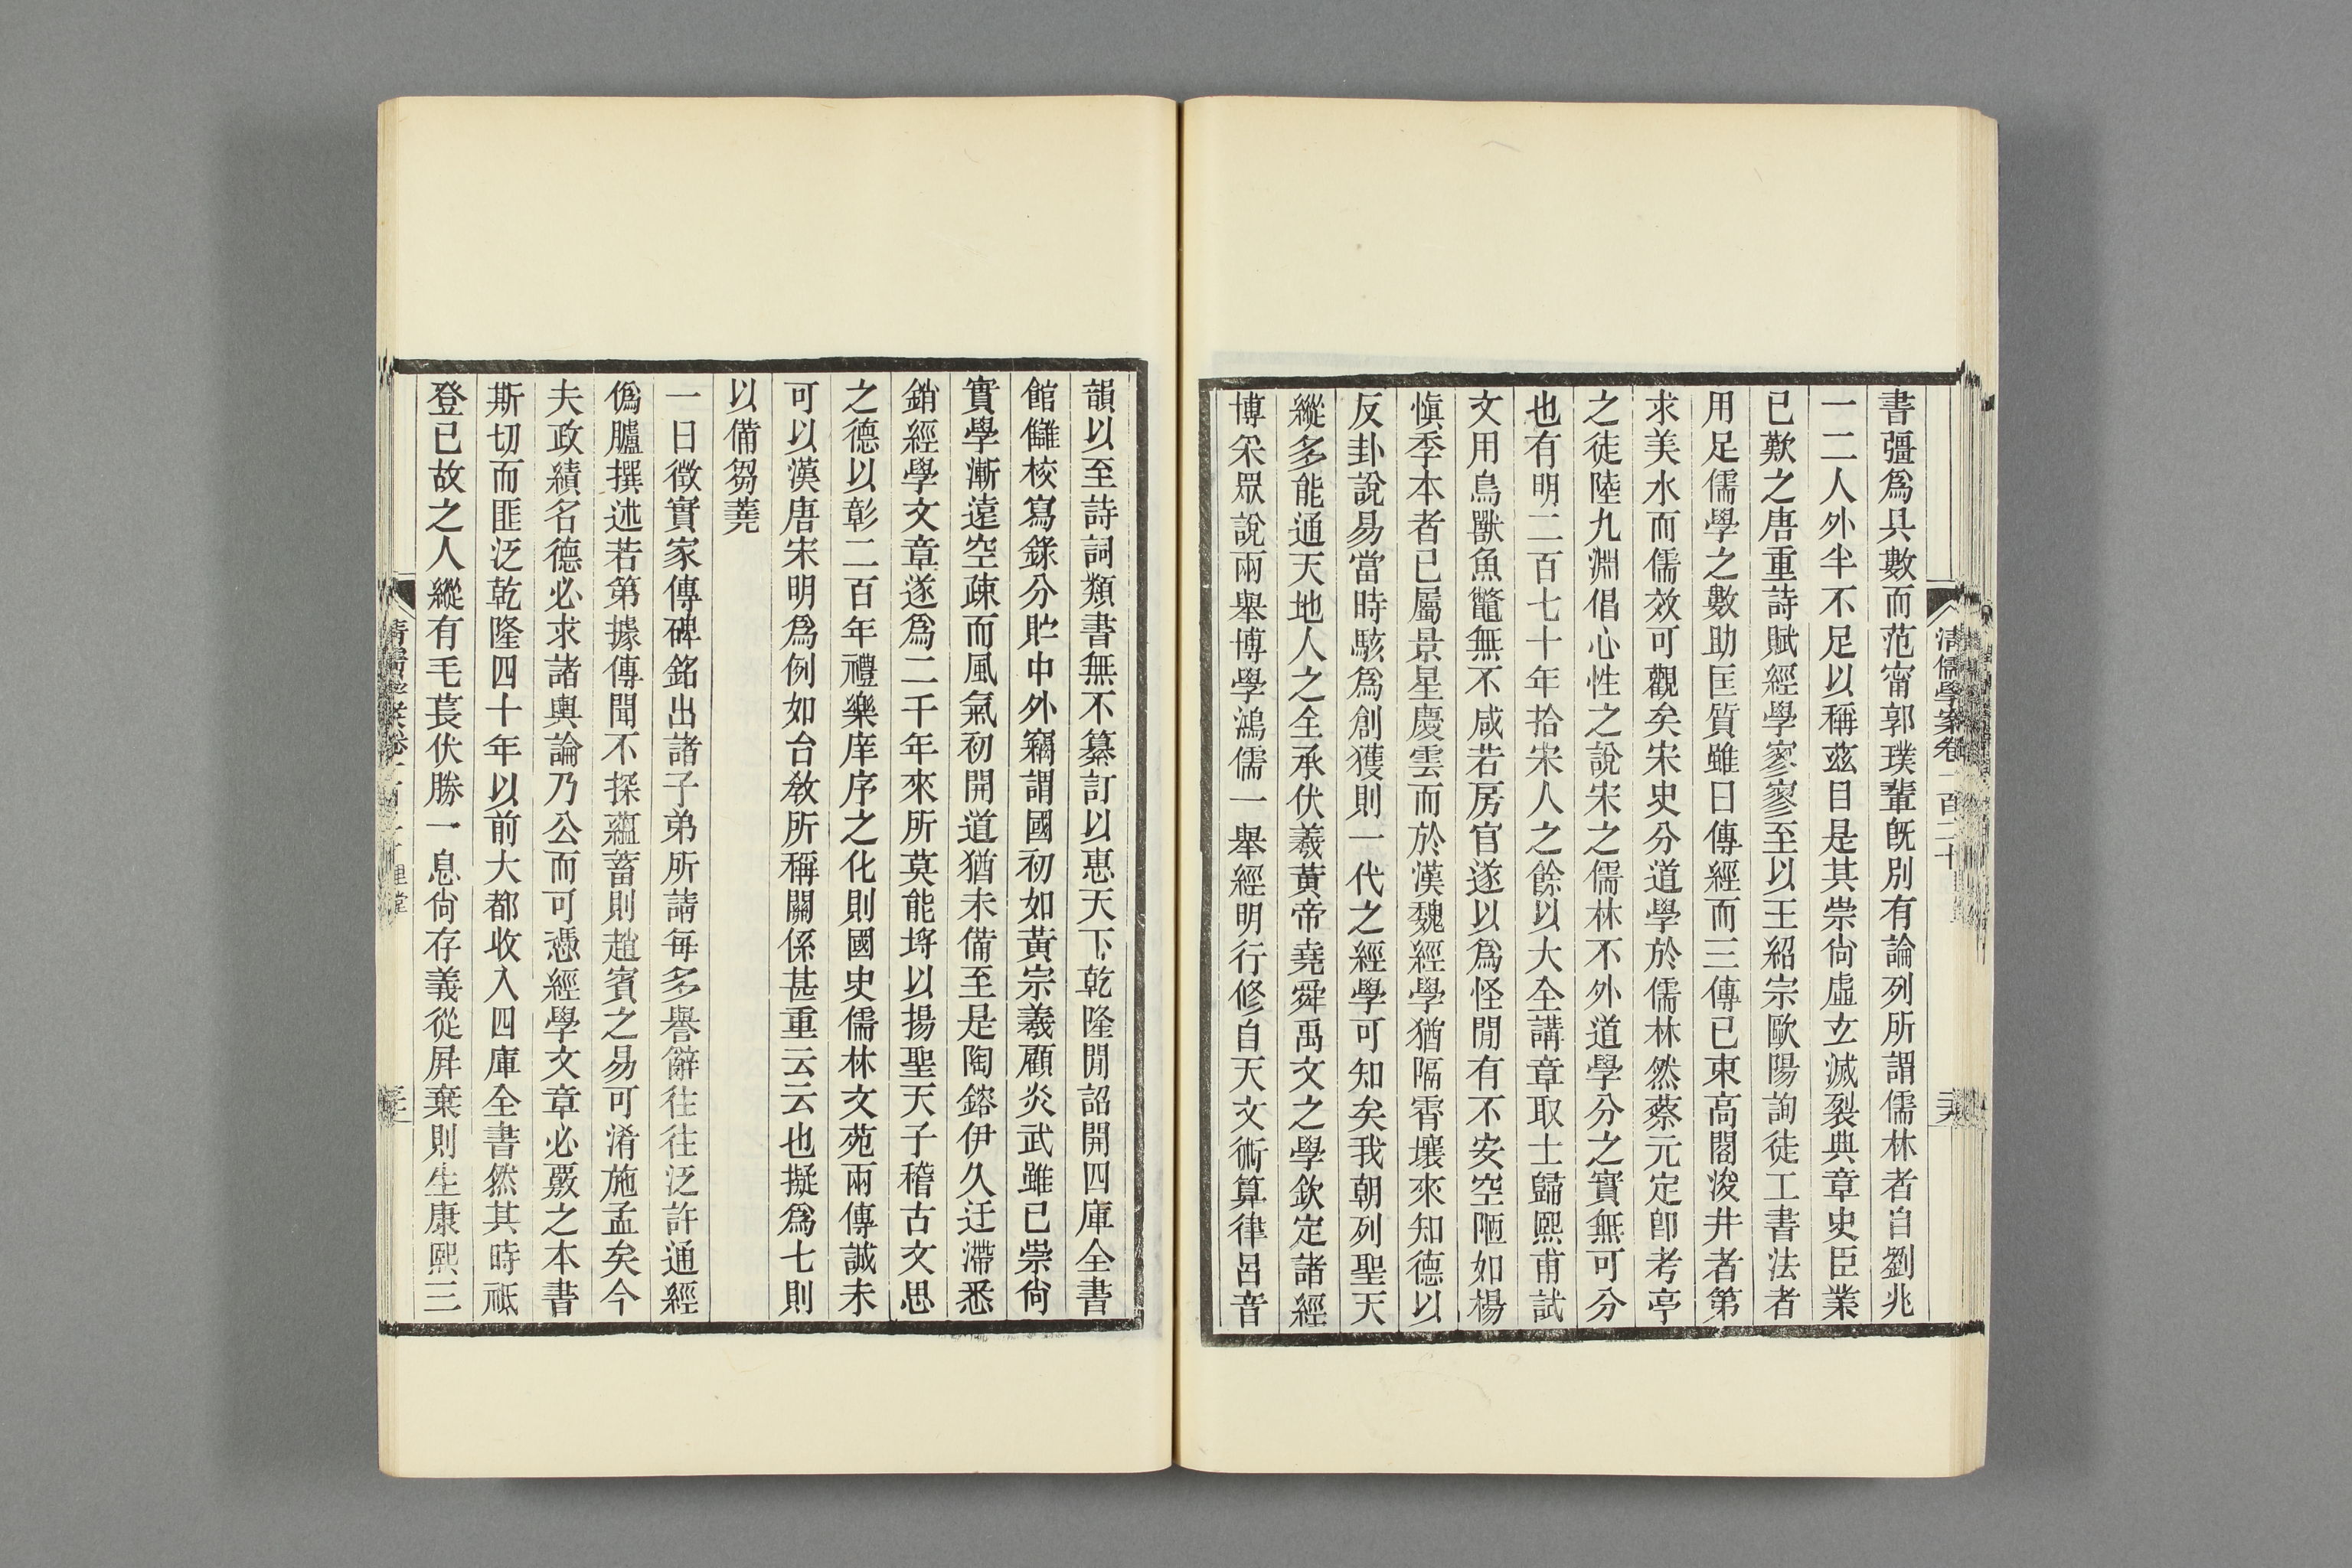 清儒學案卷一百二十
書彊爲具數而范甯郭璞輩旣別有論列所謂儒林者自劉兆
一二人外半不足以稱茲目是其崇尙虛玄滅裂典章史臣業
已歎之唐重詩賦經學寥寥至以王紹宗歐陽詢徒工書法者
用足儒學之數助匡質雖曰傳經而三傳已束高閣浚井者第
求美水而儒效可觀矣宋史分道學於儒林然蔡元定卽考亭
之徒陸九淵倡心性之說宋之儒林不外道學分之實無可分
也有明二百七十年拾宋人之餘以大全講章取士歸熙甫試
文用鳥獸魚鼈無不咸若房官遂以爲怪閒有不安空陋如楊
愼季本者已屬景星慶雲而於漢魏經學猶隔霄壤來知德以
反卦說易當時駭爲創獲則一代之經學可知矣我朝列聖天
縱多能通天地人之全承伏羲黃帝堯舜禹文之學欽定諸經
博采眾說兩舉博學鴻儒一舉經明行修自天文術算律呂音
韻以至詩詞類書無不纂訂以惠天下乾隆閒詔開四庫全書
館讎校寫錄分貯中外竊謂國初如黃宗羲顧炎武雖已崇尙
實學漸遠空疎而風氣初開道猶未備至是陶鎔伊久迂滯悉
銷經學文章遂爲二千年來所莫能埒以揚聖天子稽古文思
之德以彰二百年禮樂庠序之化則國史儒林文苑兩傳誠未
可以漢唐宋明爲例如台敎所稱關係甚重云云也擬爲七則
以備芻蕘
一曰徵實家傳碑銘出諸子弟所請每多譽辭往往泛許通經
僞臚撰述若第據傳聞不探蘊蓄則趙賓之易可淆施孟矣今
夫政績名德必求諸輿論乃公而可憑經學文章必覈之本書
斯切而匪泛乾隆四十年以前大都收入四庫全書然其時祗
登已故之人縱有毛萇伏勝一息尙存義從屛棄則生康熙三